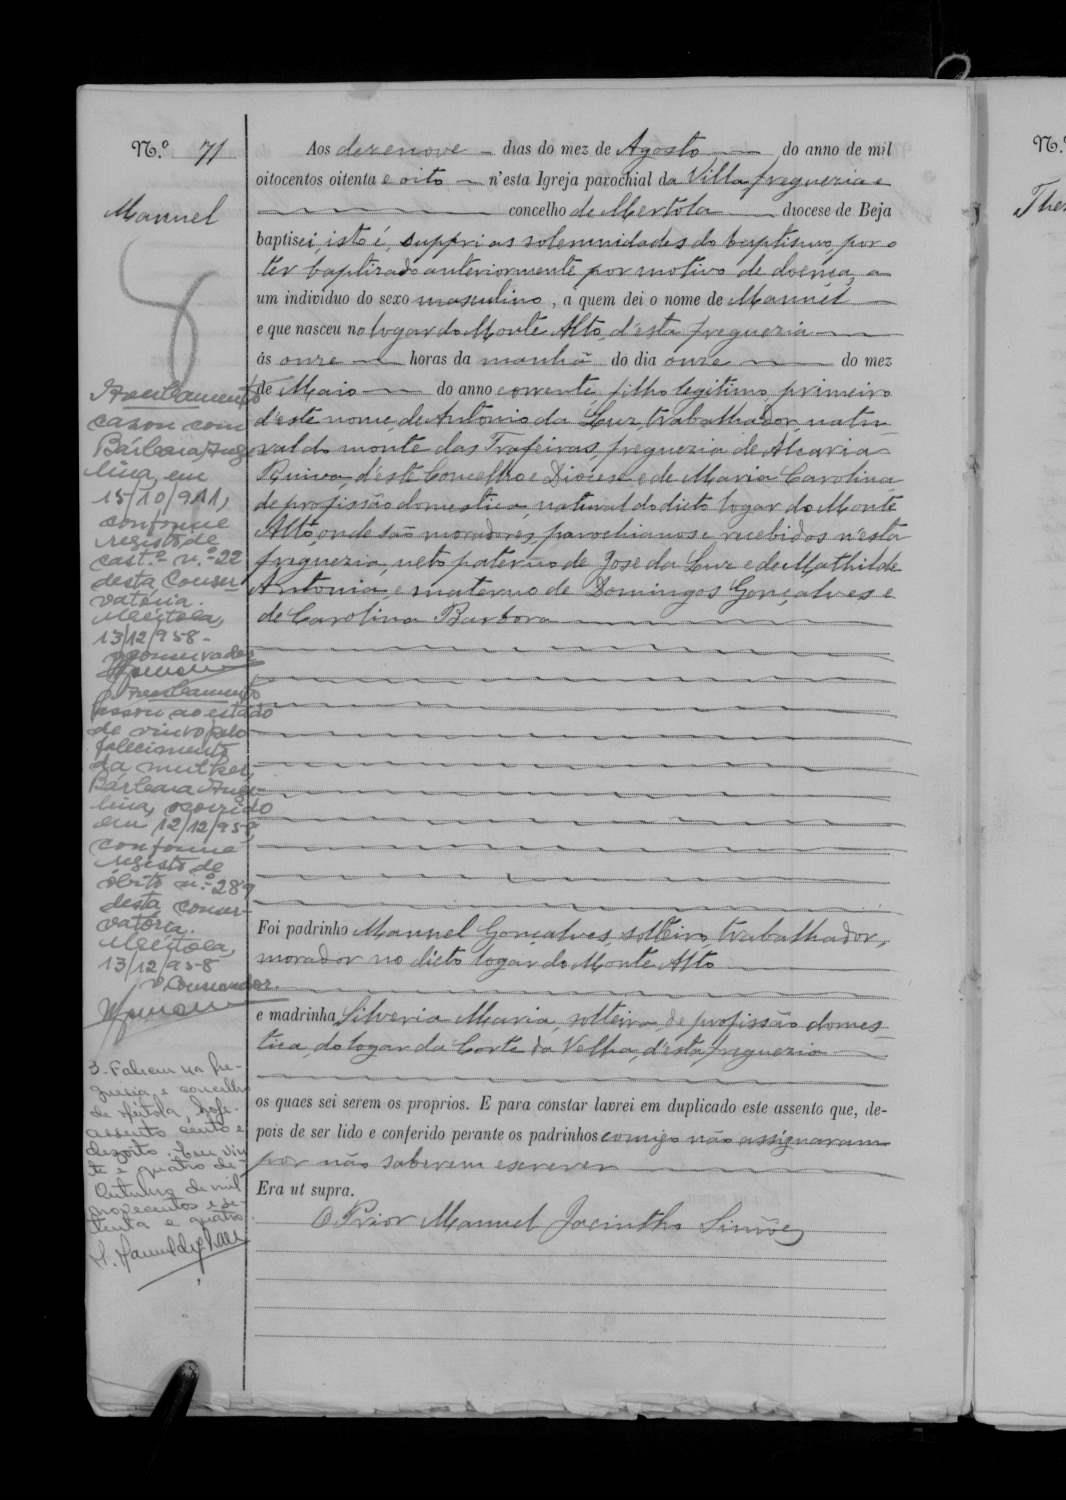 N.º 71
Manuel
Aos dezenove dias do mez de Agosto do anno de mil
oitocentos oitenta e oito n'esta Igreja parochial da Villa, freguezia e
concelho de Mertola diocese de Beja
baptisei, isto é, suppri as solemnidades do baptismo, por o
ter baptizado anteriormente por motivo de doença, a
um individuo do sexo masculino, a quem dei o nome de Manuel
e que nasceu no logar do Monte Alto, d'esta freguezia
ás onze horas da manhã do dia onze do mez
de Maio do anno corrente, filho legitimo, primeiro
d'este nome, de Antonio da Luz, trabalhador, natu-
ral do monte das Trafeiras, freguezia de Alcaria
Ruiva, d'este Concelho e Diocese e de Maria Carolina,
de profissão domestica, natural do dicto logar do Monte
Alto, onde são moradores, parochianos e recebidos n'esta
freguezia, neto paterno de José da Luz e de Mathilde
Antonia, e materno de Domingos Gonçalves e
de Carolina Barbora
Foi padrinho Manuel Gonçalves, solteiro, trabalhador,
morador no dicto logar do Monte Alto
e madrinha Silveria Maria, solteira, de profissão domes-
tica, do logar da Corte da Velha, d'esta freguezia
os quaes sei serem os proprios. E para constar lavrei em duplicado este assento que, de-
pois de ser lido e conferido perante os padrinhos comigo não assignaram
por não saberem escrever
Era ut supra.
O Prior Manuel Jacintho Simões
casou com
Bárbara Ange-
lina, em
15/10/911,
conforme
registo de
cast.º n.º 22
desta Conser-
vatória.
Mértola,
13/12/958-
o conservador
passou ao estado
de viuvo pelo
falecimento
da mulher,
Bárbara Ange-
lina, ocorrido
em 12/12/958,
conforme
registo de
óbito n.º 289
desta conser-
vatória.
Mértola,
13/12/958
o Conservador.
3. Faleceu na fre-
guesia e concelho
de Mértola, hoje.
assento cento e
dezoito. Em vin-
te e quatro de
Outubro de mil
novecentos e se-
tenta e quatro
N.